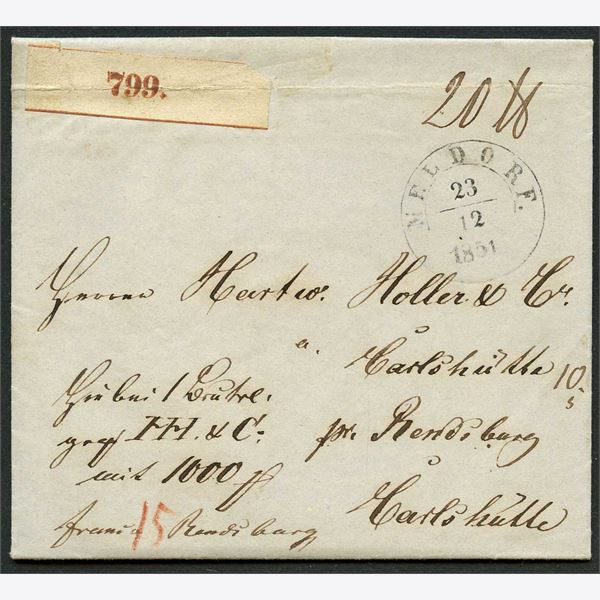 799.
20 ℔
MELDORF.
23
12
1851
Herren Hartw. Holler & Co.
a.
Carlshütte
10.
s
Hiebei 1 Beutel.
gez. HH. & C.
pr. Rendsburg
mit 1000
Carlshütte
franco Rendsburg
15